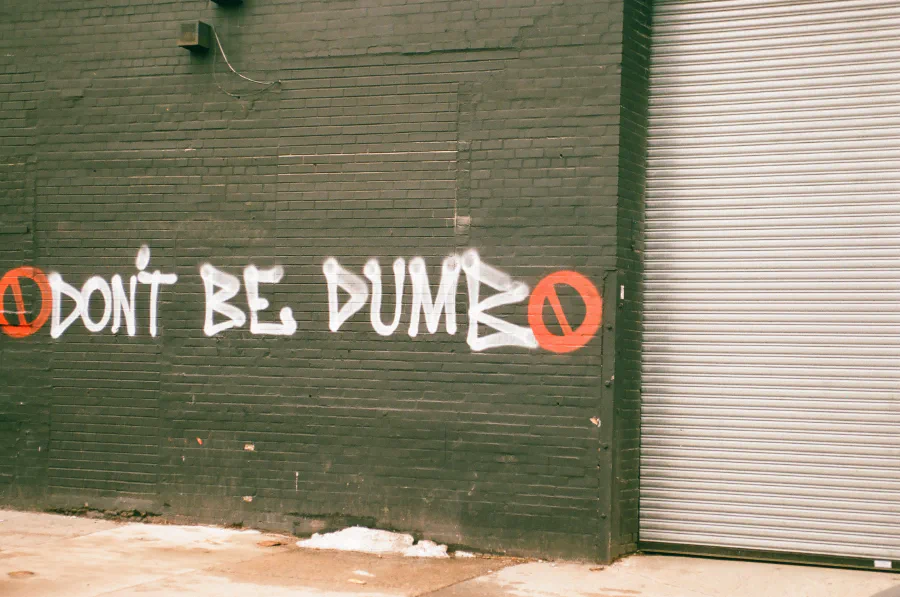 DON'T BE DUMB